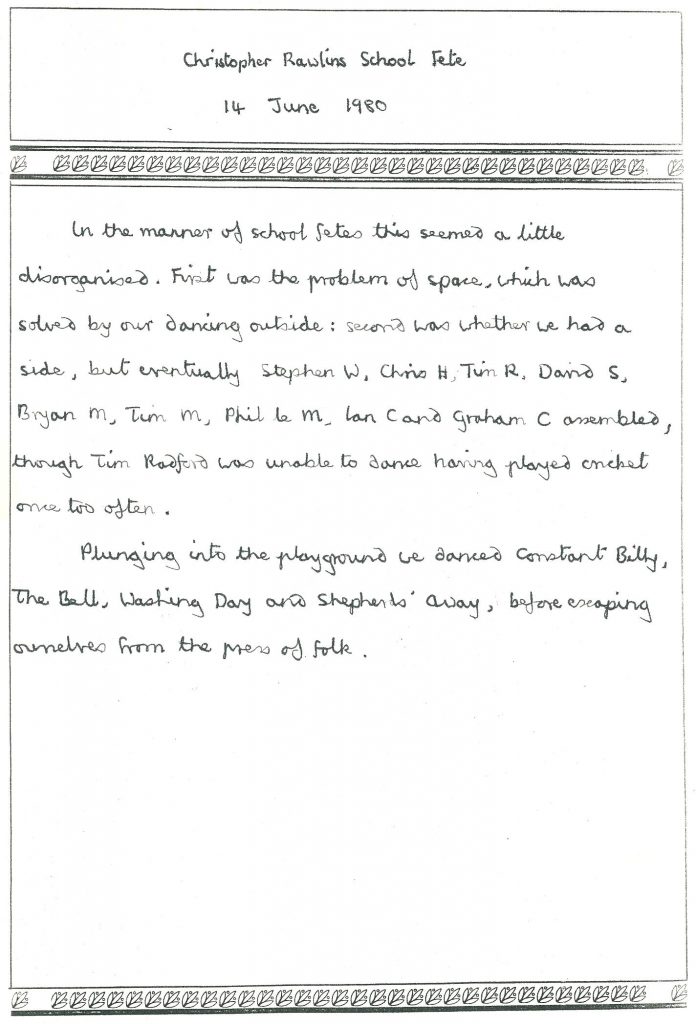 Christopher Rawlins School Fete
14 June 1980
In the manner of school fetes this seemed a little
disorganised. First was the problem of space, which was
solved by our dancing outside: second was whether we had a
side, but eventually Stephen W, Chris H, Tim R, David S,
Bryan M, Tim M, Phil le M, Ian C and Graham C assembled,
though Tim Radford was unable to dance having played cricket
once too often.
Plunging into the playground we danced Constant Billy,
The Bell, Washing Day and Shepherds' Away, before escaping
ourselves from the press of folk.